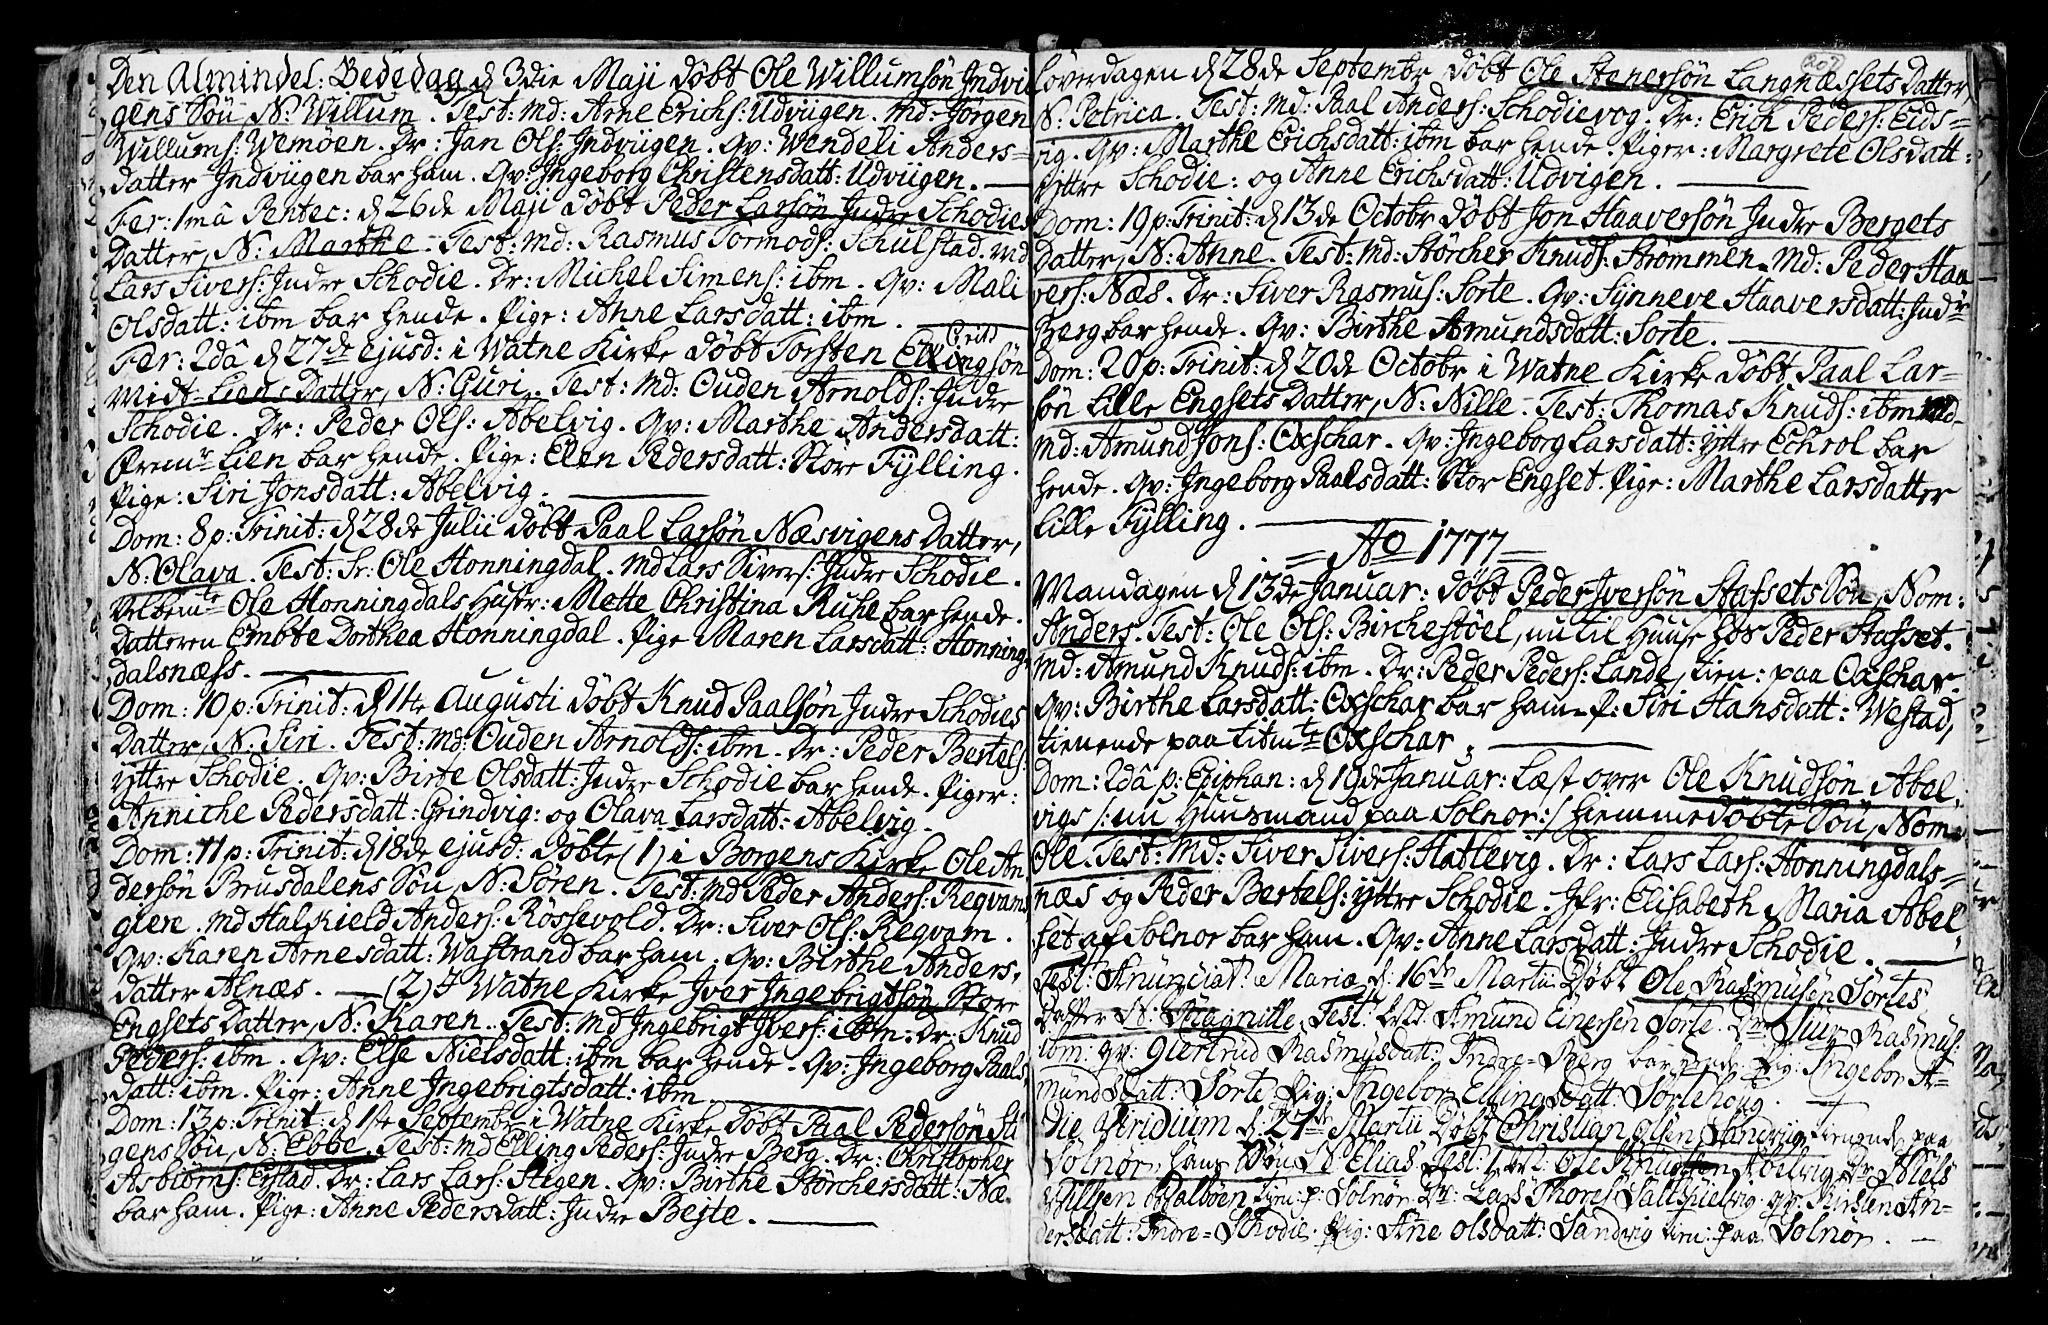 Den Almindel: Bededag d 3die Maji döbt Ole Willumsön Indvi
gens Sön N: Willum. Test: Md: Arne Erichs: Udviigen. Md: Jörgen
Willums: Wemöen. Dr: Jan Ols: Indviigen. Qv: Wendeli Anders=
datter Indviigen bar ham. Qv: Ingeborg Christensdatt: Udviigen.
Fer: 1mâ Pentec: d 26de Maji döbt Peder Larsön Indre Schodies
Datter, N: Marthe. Test: Md: Rasmus Tormods: Schulstad. Md
Lars Sivers: Indre Schodie. Dr: Michel Simens: ibm. Qv: Mali
Olsdatt: ibm bar hende. Pige: Anne Larsdatt: ibm.
Fer: 2dâ d 27de ejusd: i Watne Kirke döbt Torsten Ellingsön
Midt-Liens Datter, N: Guri. Test: Md: Ouden Arnolds: Indre
Schodie. Dr: Peder Ols: Abelvig. Qv: Marthe Andersdatt:
Fremr Lien bar hende. Pige: Elen Pedersdatt: Store Fylling.
Pige: Siri Jonsdatt: Abelvig.
Dom: 8 p: Trinit: d 28de Julii döbt Paal Larsön Næsvigens Datter,
N: Olava. Test: Sr: Ole Honningdal. Md Lars Sivers: Indre Schodie.
Velbemte Ole Honningdals Husfr: Mette Christina Ruhe bar hende.
Datteren Embte Dorthea Honningdal. Pige Maren Larsdatt: Honning=
dalsnæss.
Dom: 10 p: Trinit: d 11te Augusti döbt Knud Paalsön Indre Schodies
Datter, N: Siri. Test: Md: Ouden Arnolds: ibm. Dr: Peder Bertels:
yttre Schodie. Qv: Birte Olsdatt: Indre Schodie bar hende. Piger:
Anniche Pedersdatt: Grindvig: og Olava Larsdatt: Abelvig.
Dom: 11 p: Trinit: d 18de ejusd: döbte (1) i Borgens Kirke Ole An
dersön Brusdalens Sön, N: Sören. Test: Md Peder Anders: Reqvams
giere. Md Halkield Anders: Rössevold. Dr: Siver Ols: Reqvam.
Qv: Karen Arnesdatt: Wastrand bar ham. Qv: Birthe Anders,
datter Alnæs. (2) I Watne Kirke Iver Ingebrigtsön Store
Engsets Datter, N: Karen. Test: Md Ingebrigt Ivers: ibm. Dr: Knud
Peders: ibm. Qv: Else Nielsdatt: ibm bar hende. Qv: Ingeborg Paals,
datt: ibm. Pige: Anne Ingebrigtsdatt: ibm.
Dom: 13 p: Trinit: d 1ste Septembr i Watne Kirke döbt Paal Pedersön Sti
gens Sön, N: Ebbe. Test: Md Elling Peders: Indre Berg. Dr: Christopher
Asbiörns: Erstad. Dr: Lars Lars: Stigen. Qv: Birthe Störchersdatt: Næ.
bar ham. Pige: Anne Pedersdatt: Indre Bejte.
207
Löverdagen d 28de Septembr döbt Ole Stenersön Langnæssets Datter,
N: Petrica. Test: Md: Paal Anders: Schodievog. Dr: Erich Peders: Eids=
vig. Qv: Marthe Erichsdatt: ibm bar hende. Piger: Margrete Olsdatt:
yttre Schodie: og Anne Erichsdatt: Udvigen.
Dom: 19 p: Trinit: d 13de Octobr döbt Jon Haaversön Indre Bergets
Datter, N: Anne. Test: Md: Störcher Knuds: Strömmen. Md: Peder Haa
vers: Næs. Dr: Siver Rasmus: Sorte. Qv: Synneve Haaversdatt: Indr
Berg bar hende. Qv: Birthe Amundsdatt: Sorte.
Dom: 20 p: Trinit: d 20de Octobr i Watne Kirke döbt Paal Lar=
sön Lille Engsets Datter, N: Nille. Test: Thomas Knuds: ibm
Md: Amund Jons: Oxschar. Qv: Ingeborg Larsdatt: yttre Echrol bar
hende. Qv: Ingeborg Paalsdatt: Stor Engset. Pige: Marthe Larsdatter
Lille Fylling.
=Ao 1777=
Mandagen d 13de Januar: döbt Peder Iversön Stafsets Sön, Nom:
Anders. Test: Ole Ols: Birchestöel, nu til Huuse hos Peder Stafset.
Md: Amund Knuds: ibm. Dr: Peder Peders: Lande, tien: paa Oxschar.
Qv: Birthe Larsdatt: Oxschar bar ham. P: Siri Hansdatt: Westad,
tienende paa titmte Oxschar.
Dom: 2dâ p: Epiphan: d 19de Januar: Læst over Ole Knudsön Abel,
vigs /: nu Huusmand paa Solnor:/ hiemmedöbte Sön, Nom:
Ole. Test: Md: Siver Sivers: Hatlevig. Dr: Lars Lars: Honningdals=
næs og Peder Bertels: yttre Schodie. Jfr: Elisabeth Maria Abel
set af Solnor bar ham. Qv: Anne Larsdatt: Indre Schodie.
Fest: Anunciat: Mariæ d: 16de Martii Döbt Ole Rasmusen Sortes
Datter N: Magnille Test: Amund Einersen Sorte. Dr: Siur Rasmus:
ibm: qv: Giertrud Rasmusdatt: Indre=Berg bar hende Pig: Ingebor A=
mundsdatt: Sorte Pig: Ingebor Ellingsdatt: Sortehoug.
Die Viridium d: 27de Martii Döbt Christian Olsen Sandvig, tienende paa
Solnör, hans Sön N: Elias Test: Ole Knutsen Abelvig Dr: Niels
Nilssen Dalböen tien: p: Solnör Dr: Lars Thores: qv: Kirsten An=
dersdatt: Indre=Schodie Pig: Ane Olsdatt: Sandvig tien: paa Solnör.